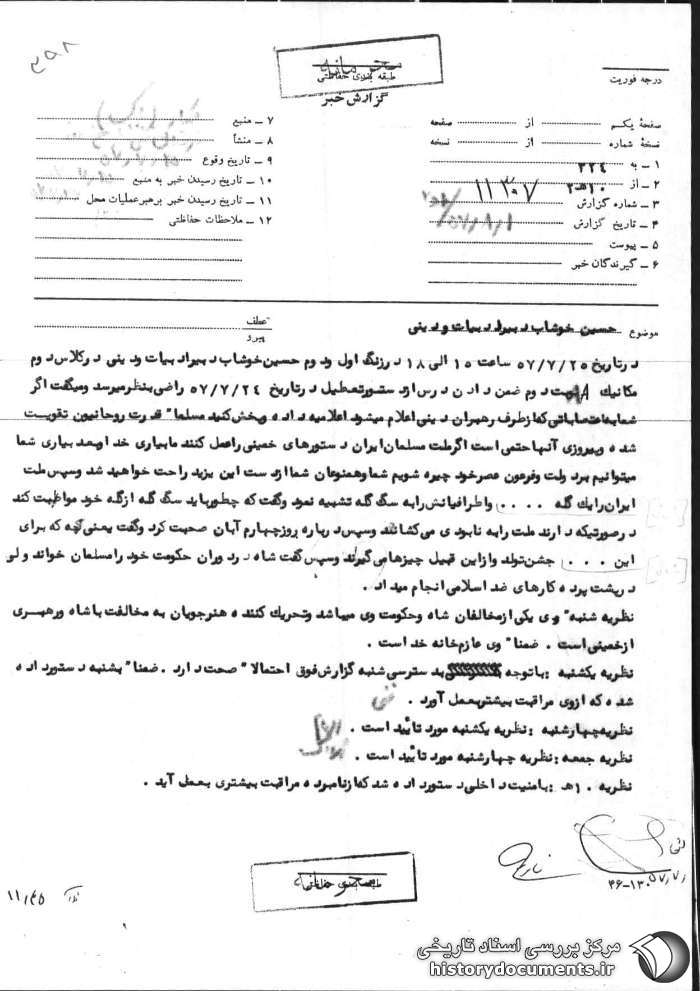 ۳۵۸
محرمانه
طبقه بندی حفاظتی
گزارش خبر
درجه فوریت
صفحهٔ یکم از صفحه
نسخهٔ شماره از نسخه
۱ ـ به ۳۳۴
۲ ـ از ۱۰هـ۳
۳ ـ شماره گزارش
۴ ـ تاریخ گزارش ۵۷/۸/۱
۵ ـ پیوست
۶ ـ گیرندگان خبر
۷ ـ منبع
۸ ـ منشأ
۹ ـ تاریخ وقوع
۱۰ ـ تاریخ رسیدن خبر به منبع
۱۱ ـ تاریخ رسیدن خبر برهبرعملیات محل
۱۲ ـ ملاحظات حفاظتی
موضوع حسین خوشاب دبیراد بیات ودینی
عطف
پیرو
درتاریخ ۵۷/۷/۲۵ ساعت ۱۵ الی ۱۸ درزنگ اول ودوم حسین خوشاب دبیراد بیات ودینی درکلاس دوم
مکانیک دوم ضمن دادن درس ازدستورتعطیل درتاریخ ۵۷/۷/۲۴ راضی بنظرمیرسد ومیگفت اگر
شما به اعتصاباتی که ازطرف رهبران دینی اعلام میشود اعلامیه داده وپخش کنید مسلما" قدرت روحانیون تقویت
شده وپیروزی آنها حتمی است اگرملت مسلمان ایران دستورهای خمینی راعمل کنند مابیاری خداوبعد بیاری شما
میتوانیم بردولت وفرعون عصرخود چیره شویم شما وهمنوعان شما ازدست این یزید راحت خواهید شد وسپس ملت
ایران رابیک گله .... واطرافیانش رابه سگ گله تشبیه نمود وگفت که چطورباید سگ گله ازگله خود مواظبت کند
درصورتیکه دارند ملت رابه نابودی می کشانند وسپس درباره روزچهارم آبان صحبت کرد وگفت یعنی چه که برای
این ... جشن تولد وازاین قبیل چیزها می گیرند وسپس گفت شاه دردوران حکومت خود رامسلمان خواند ولی
درپشت پرده کارهای ضد اسلامی انجام میداد .
نظریه شنبه " وی یکی ازمخالفان شاه وحکومت وی میباشد وتحریک کننده هنرجویان به مخالفت باشاه ورهبری
ازخمینی است . ضمنا" وی عازم خانه خداست .
نظریه یکشنبه : باتوجه بدسترسی شنبه گزارش فوق احتمالا" صحت دارد . ضمنا" بشنبه دستورداده
شده که ازوی مراقبت بیشتربعمل آورد .
نظریه چهارشنبه : نظریه یکشنبه مورد تأیید است .
نظریه جمعه : نظریه چهارشنبه مورد تأیید است .
نظریه ۱۰هـ : بامنیت داخلی دستورداده شد که ازنامبرده مراقبت بیشتری بعمل آید .
۴۶-۱۳
محرمانه
۱۱/۴۵
مرکز بررسی اسناد تاریخی
historydocuments.ir